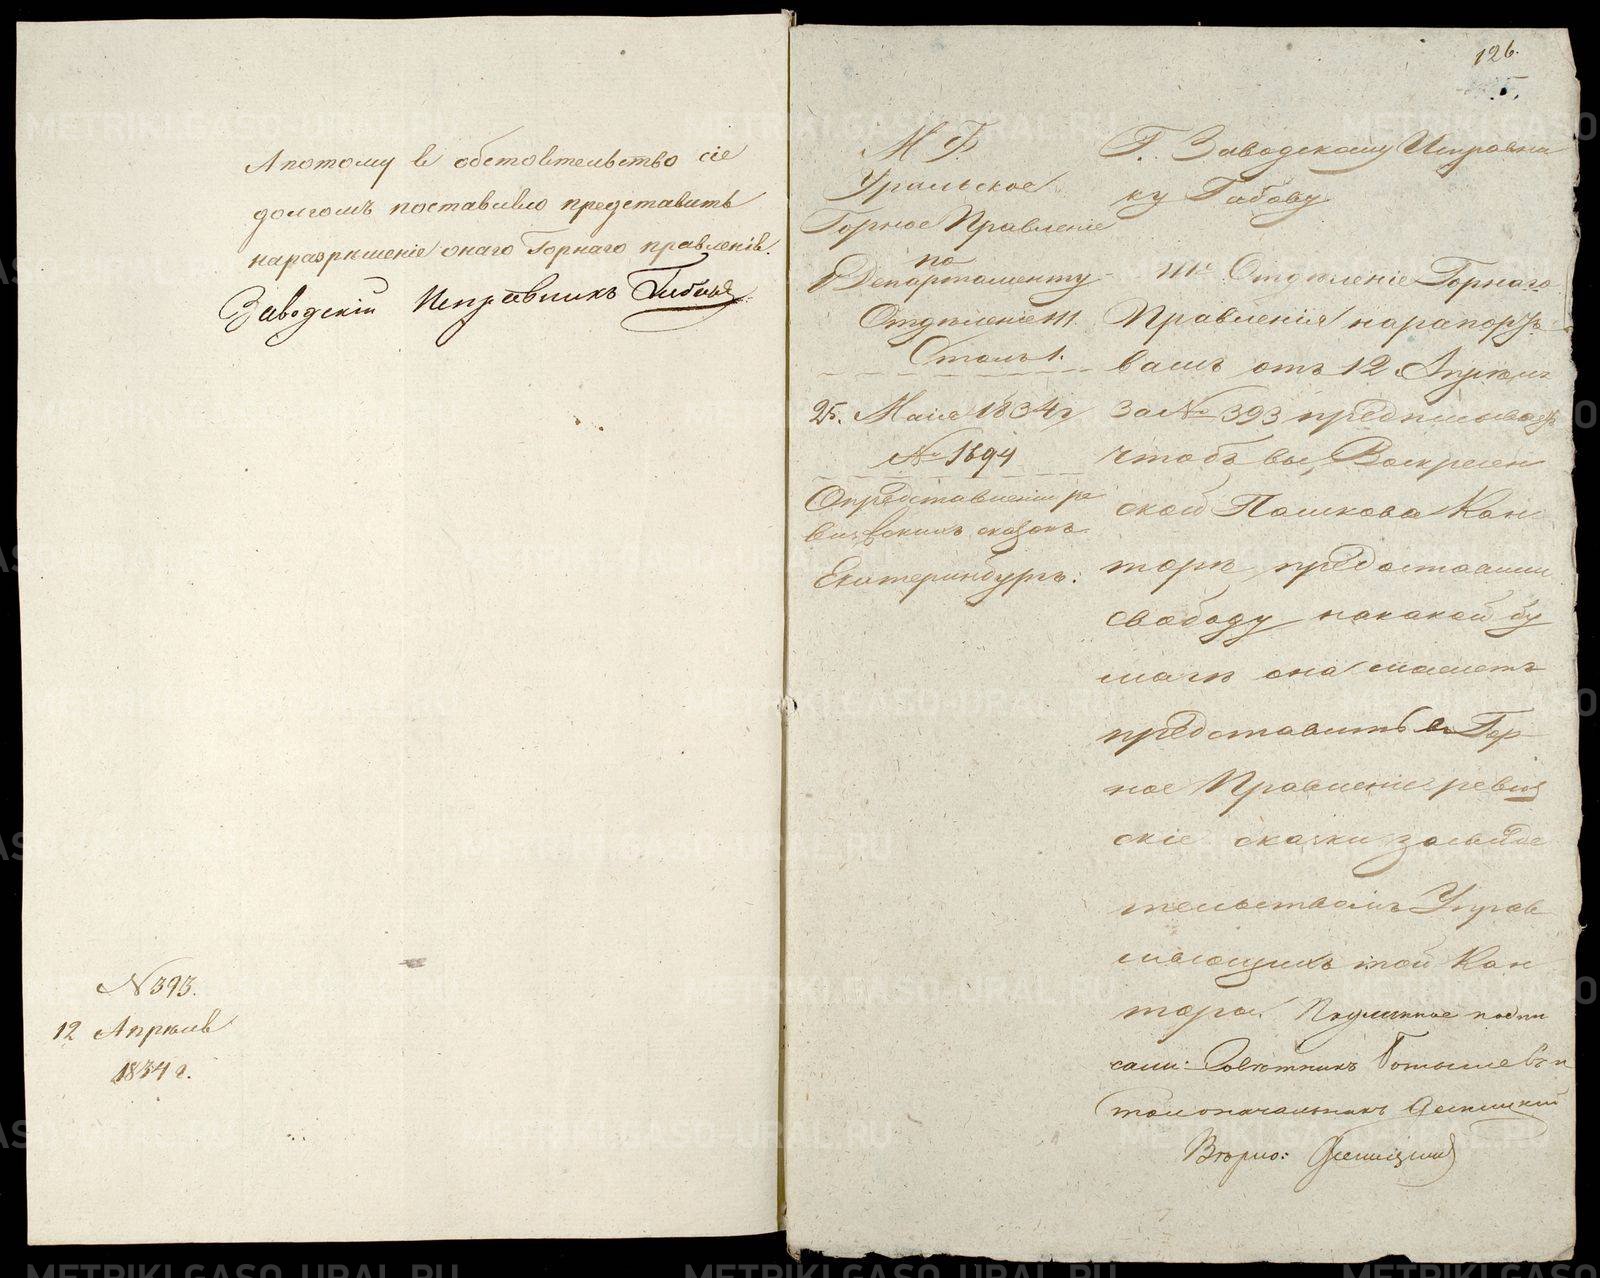 А потому в обстоятельство сіе
долгомъ поставляю представить
на разрѣшеніе онаго Горнаго правленія.
Заводскій Исправникъ
№ 393.
12 Апрѣля
1834 г.
126.
М. Ф.
Уральское
Горное Правленіе
по
Департаменту
Отдѣленіе III.
Столъ 1.
25. Маія 1834 г
№ 1694
О представленіи ре
визскихъ сказокъ
Екатеринбургъ.
Г. Заводскому Исправни
ку
III е Отдѣленіе Горнаго
Правленія на рапортъ
вашъ отъ 12 Апрѣля
за № 393 предписываетъ
чтобъ вы, Воскресен
ской Пашкова Кон
торѣ, предоставили
свободу на какой бу
магѣ она желаетъ
представить в Гор
ное Правленіе ревиз
скіе сказки за свидѣ
тельствомъ Управ
ляющихъ той Кон
торы. Подлинное подпи
сали: Совѣтникъ
толоначальникъ
Вѣрно:
METRIKI.GASO-URAL.RU